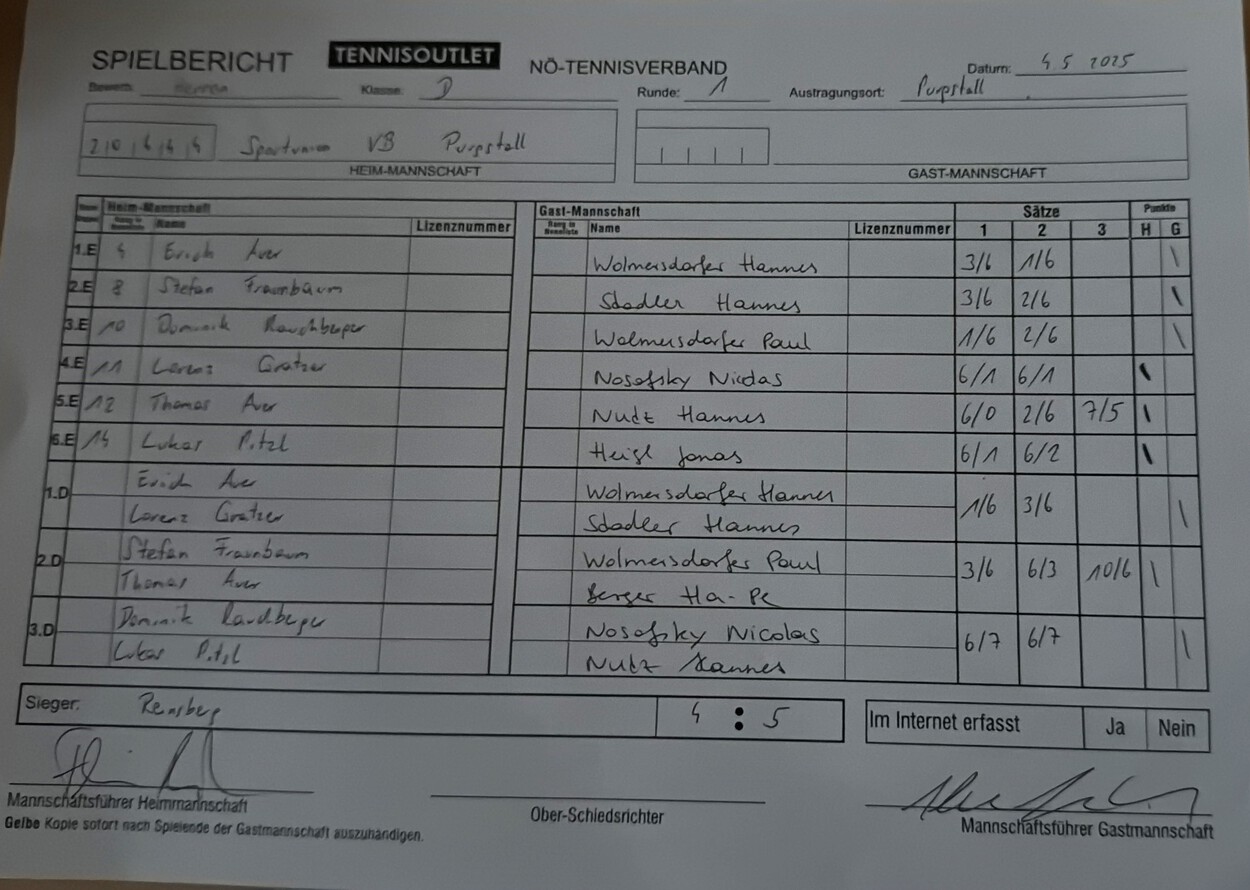 SPIELBERICHT TENNISOUTLET NÖ-TENNISVERBAND Datum: 4 5 2025
Bewerb: Herren Klasse: D Runde: 1 Austragungsort: Purgstall
Sportunion VB Purgstall
HEIM-MANNSCHAFT GAST-MANNSCHAFT
Heim-Mannschaft Gast-Mannschaft Sätze Punkte
Rang in Nennliste Name Lizenznummer Rang in Nennliste Name Lizenznummer 1 2 3 H G
1.E 4 Erich Auer Wolmersdorfer Hannes 3/6 1/6 \
2.E 8 Stefan Fraunbaum Stadler Hannes 3/6 2/6 \
3.E 10 Dominik Rauchberger Wolmersdorfer Paul 1/6 2/6 \
4.E 11 Lorenz Gratzer Nosofsky Nicolas 6/1 6/1 \
5.E 12 Thomas Auer Nutz Hannes 6/0 2/6 7/5 \
6.E 14 Lukas Pitzl Heigl Jonas 6/1 6/2 \
1.D Erich Auer Wolmersdorfer Hannes 1/6 3/6 \
Lorenz Gratzer Stadler Hannes
2.D Stefan Fraunbaum Wolmersdorfer Paul 3/6 6/3 10/6 \
Thomas Auer Berger Ha-Pe
3.D Dominik Rauchberger Nosofsky Nicolas 6/7 6/7 \
Lukas Pitzl Nutz Hannes
Sieger: Reinsberg 4 : 5 Im Internet erfasst Ja Nein
Mannschaftsführer Heimmannschaft Ober-Schiedsrichter Mannschaftsführer Gastmannschaft
Gelbe Kopie sofort nach Spielende der Gastmannschaft auszuhändigen.